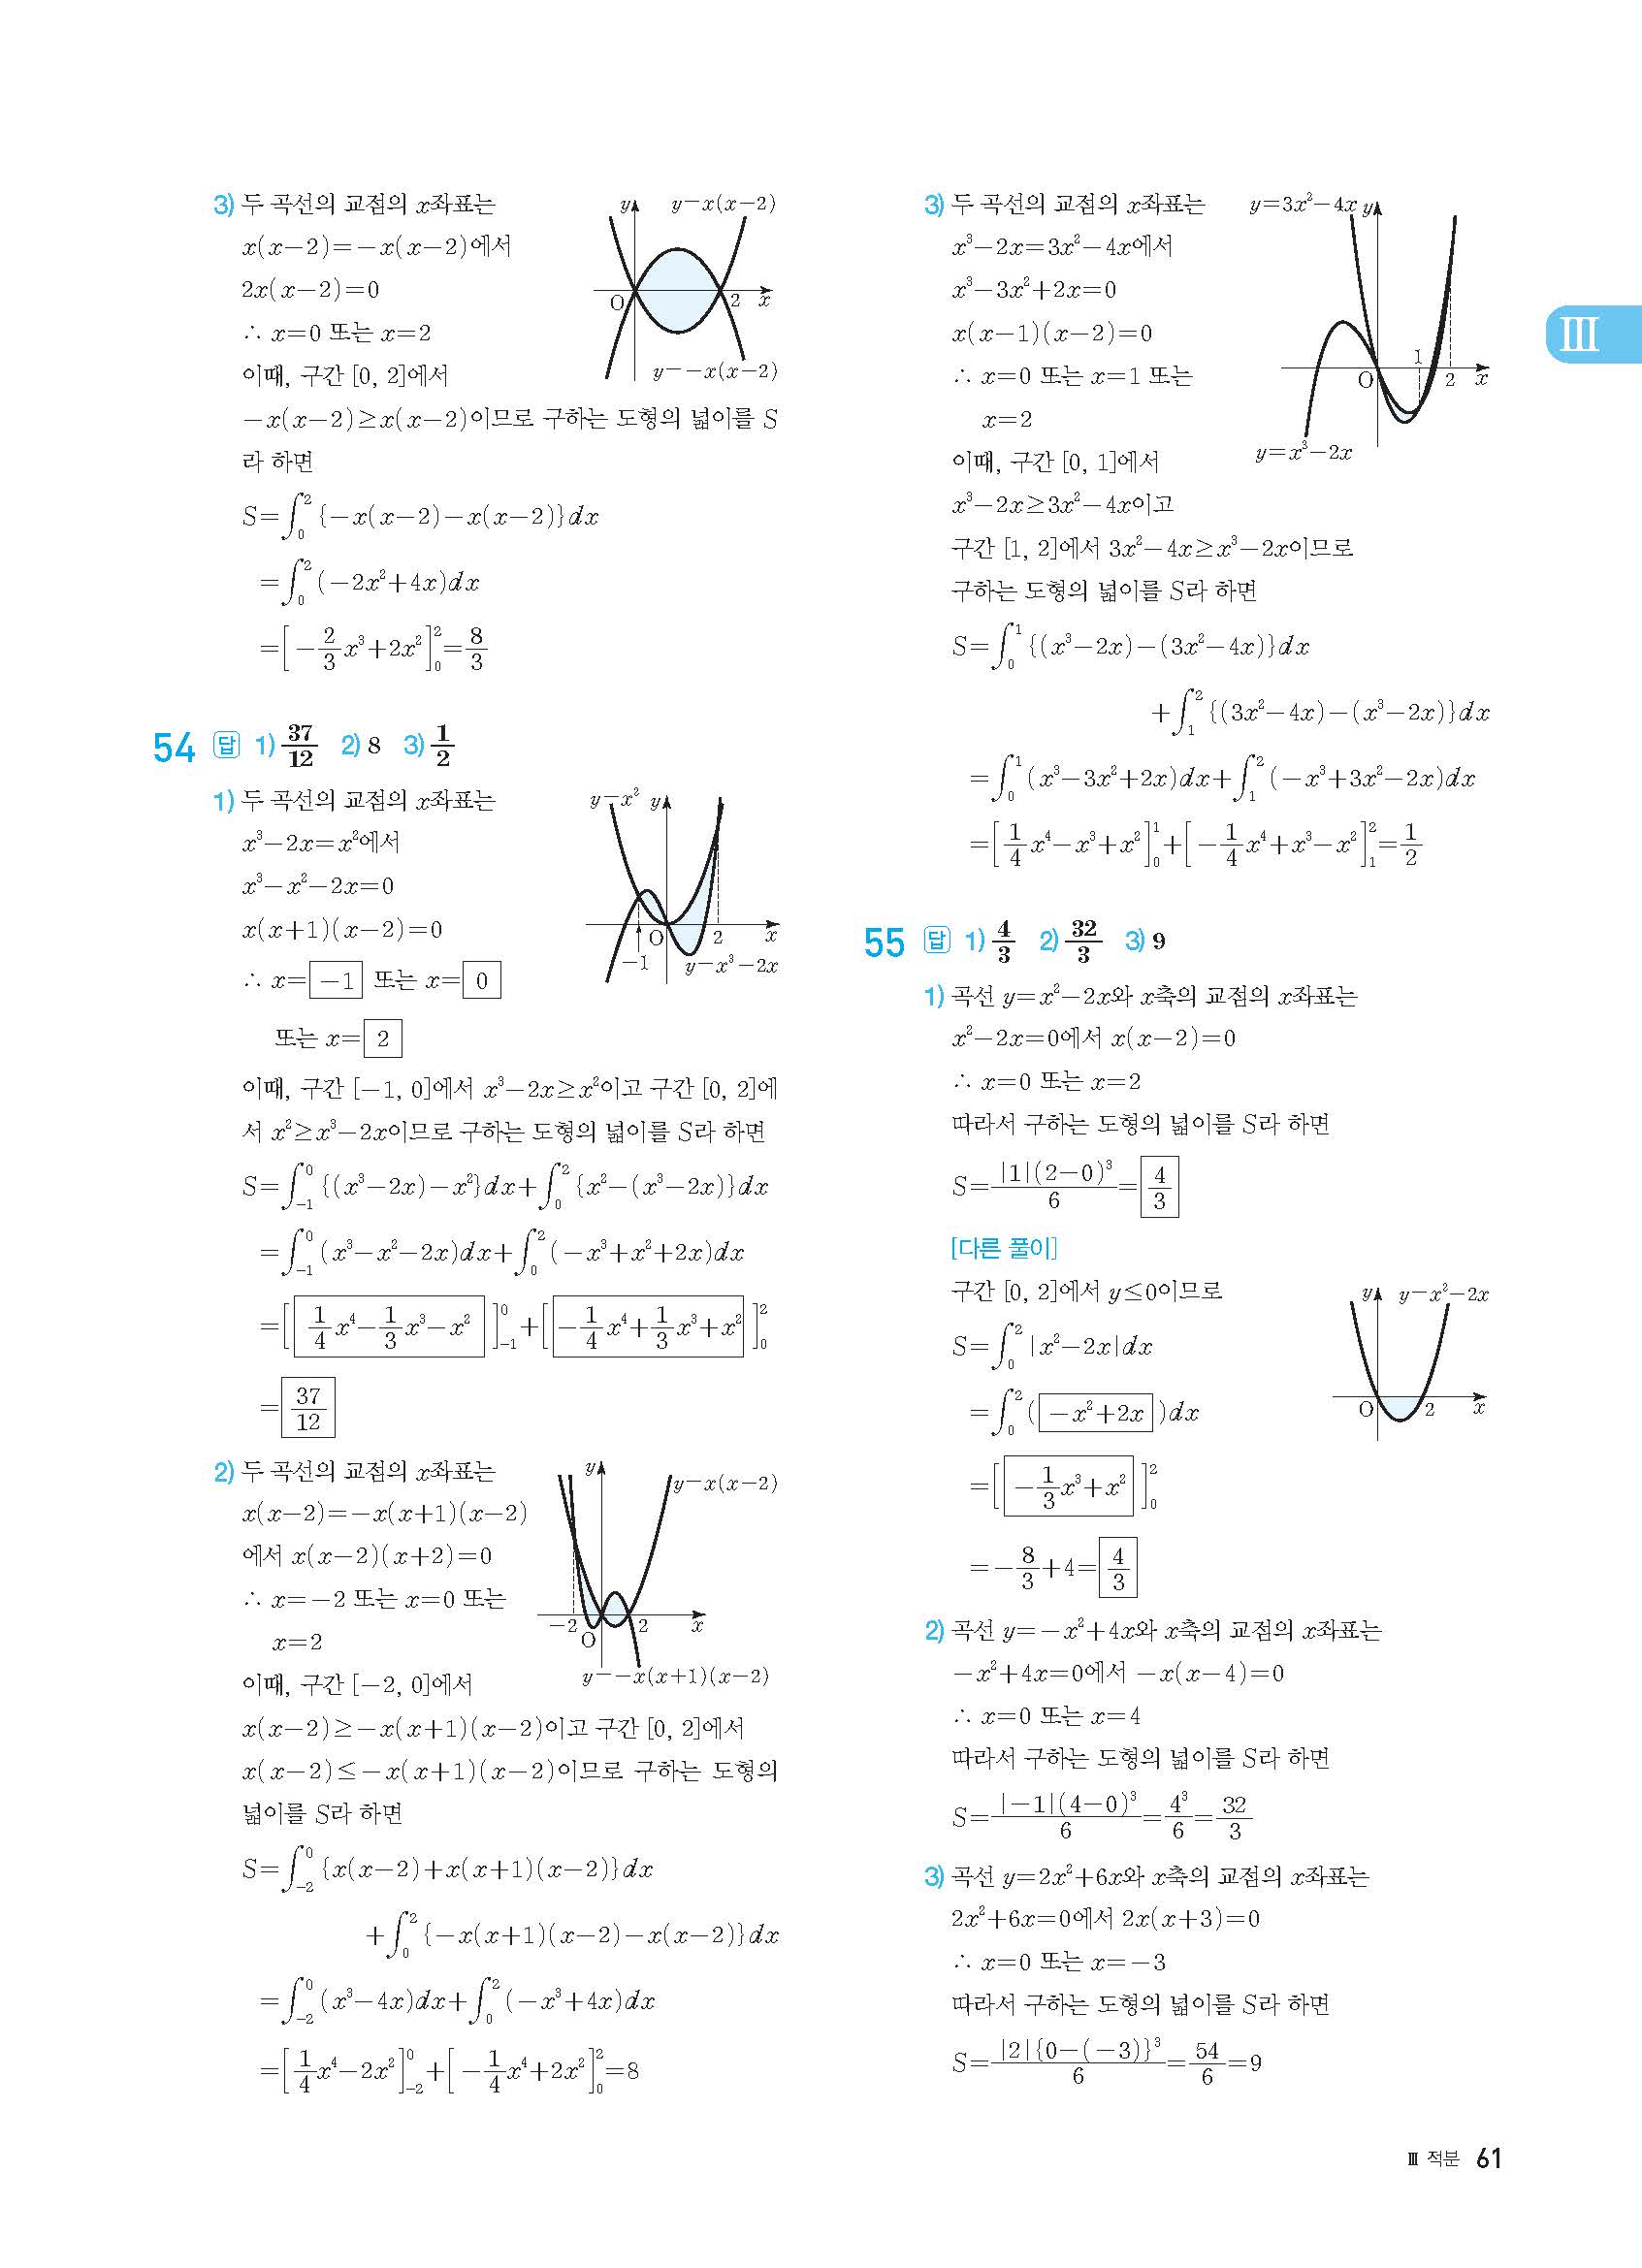 3) 두 곡선의 교점의 x좌표는
x(x−2)=−x(x−2)에서
2x(x−2)=0
∴ x=0 또는 x=2
이때, 구간 [0, 2]에서
−x(x−2)≥x(x−2)이므로 구하는 도형의 넓이를 S
라 하면
S=∫₀² {−x(x−2)−x(x−2)}dx
=∫₀² (−2x²+4x)dx
=[−2/3 x³+2x²]₀²=8/3
y y=x(x−2)
O 2 x
y=−x(x−2)
54 답 1) 37/12 2) 8 3) 1/2
1) 두 곡선의 교점의 x좌표는
x³−2x=x²에서
x³−x²−2x=0
x(x+1)(x−2)=0
∴ x=−1 또는 x=0
또는 x=2
y=x² y
O 2 x
−1 y=x³−2x
이때, 구간 [−1, 0]에서 x³−2x≥x²이고 구간 [0, 2]에
서 x²≥x³−2x이므로 구하는 도형의 넓이를 S라 하면
S=∫₋₁⁰ {(x³−2x)−x²}dx+∫₀² {x²−(x³−2x)}dx
=∫₋₁⁰ (x³−x²−2x)dx+∫₀² (−x³+x²+2x)dx
=[1/4 x⁴−1/3 x³−x²]₋₁⁰+[−1/4 x⁴+1/3 x³+x²]₀²
=37/12
2) 두 곡선의 교점의 x좌표는
x(x−2)=−x(x+1)(x−2)
에서 x(x−2)(x+2)=0
∴ x=−2 또는 x=0 또는
x=2
y y=x(x−2)
−2 O 2 x
y=−x(x+1)(x−2)
이때, 구간 [−2, 0]에서
x(x−2)≥−x(x+1)(x−2)이고 구간 [0, 2]에서
x(x−2)≤−x(x+1)(x−2)이므로 구하는 도형의
넓이를 S라 하면
S=∫₋₂⁰ {x(x−2)+x(x+1)(x−2)}dx
+∫₀² {−x(x+1)(x−2)−x(x−2)}dx
=∫₋₂⁰ (x³−4x)dx+∫₀² (−x³+4x)dx
=[1/4 x⁴−2x²]₋₂⁰+[−1/4 x⁴+2x²]₀²=8
3) 두 곡선의 교점의 x좌표는
x³−2x=3x²−4x에서
x³−3x²+2x=0
x(x−1)(x−2)=0
∴ x=0 또는 x=1 또는
x=2
y=3x²−4x y
1
O 2 x
y=x³−2x
이때, 구간 [0, 1]에서
x³−2x≥3x²−4x이고
구간 [1, 2]에서 3x²−4x≥x³−2x이므로
구하는 도형의 넓이를 S라 하면
S=∫₀¹ {(x³−2x)−(3x²−4x)}dx
+∫₁² {(3x²−4x)−(x³−2x)}dx
=∫₀¹ (x³−3x²+2x)dx+∫₁² (−x³+3x²−2x)dx
=[1/4 x⁴−x³+x²]₀¹+[−1/4 x⁴+x³−x²]₁²=1/2
55 답 1) 4/3 2) 32/3 3) 9
1) 곡선 y=x²−2x와 x축의 교점의 x좌표는
x²−2x=0에서 x(x−2)=0
∴ x=0 또는 x=2
따라서 구하는 도형의 넓이를 S라 하면
S=|1|(2−0)³/6=4/3
[다른 풀이]
구간 [0, 2]에서 y≤0이므로
S=∫₀² |x²−2x|dx
=∫₀² (−x²+2x)dx
=[−1/3 x³+x²]₀²
=−8/3+4=4/3
y y=x²−2x
O 2 x
2) 곡선 y=−x²+4x와 x축의 교점의 x좌표는
−x²+4x=0에서 −x(x−4)=0
∴ x=0 또는 x=4
따라서 구하는 도형의 넓이를 S라 하면
S=|−1|(4−0)³/6=4³/6=32/3
3) 곡선 y=2x²+6x와 x축의 교점의 x좌표는
2x²+6x=0에서 2x(x+3)=0
∴ x=0 또는 x=−3
따라서 구하는 도형의 넓이를 S라 하면
S=|2|{0−(−3)}³/6=54/6=9
Ⅲ
Ⅲ 적분 61